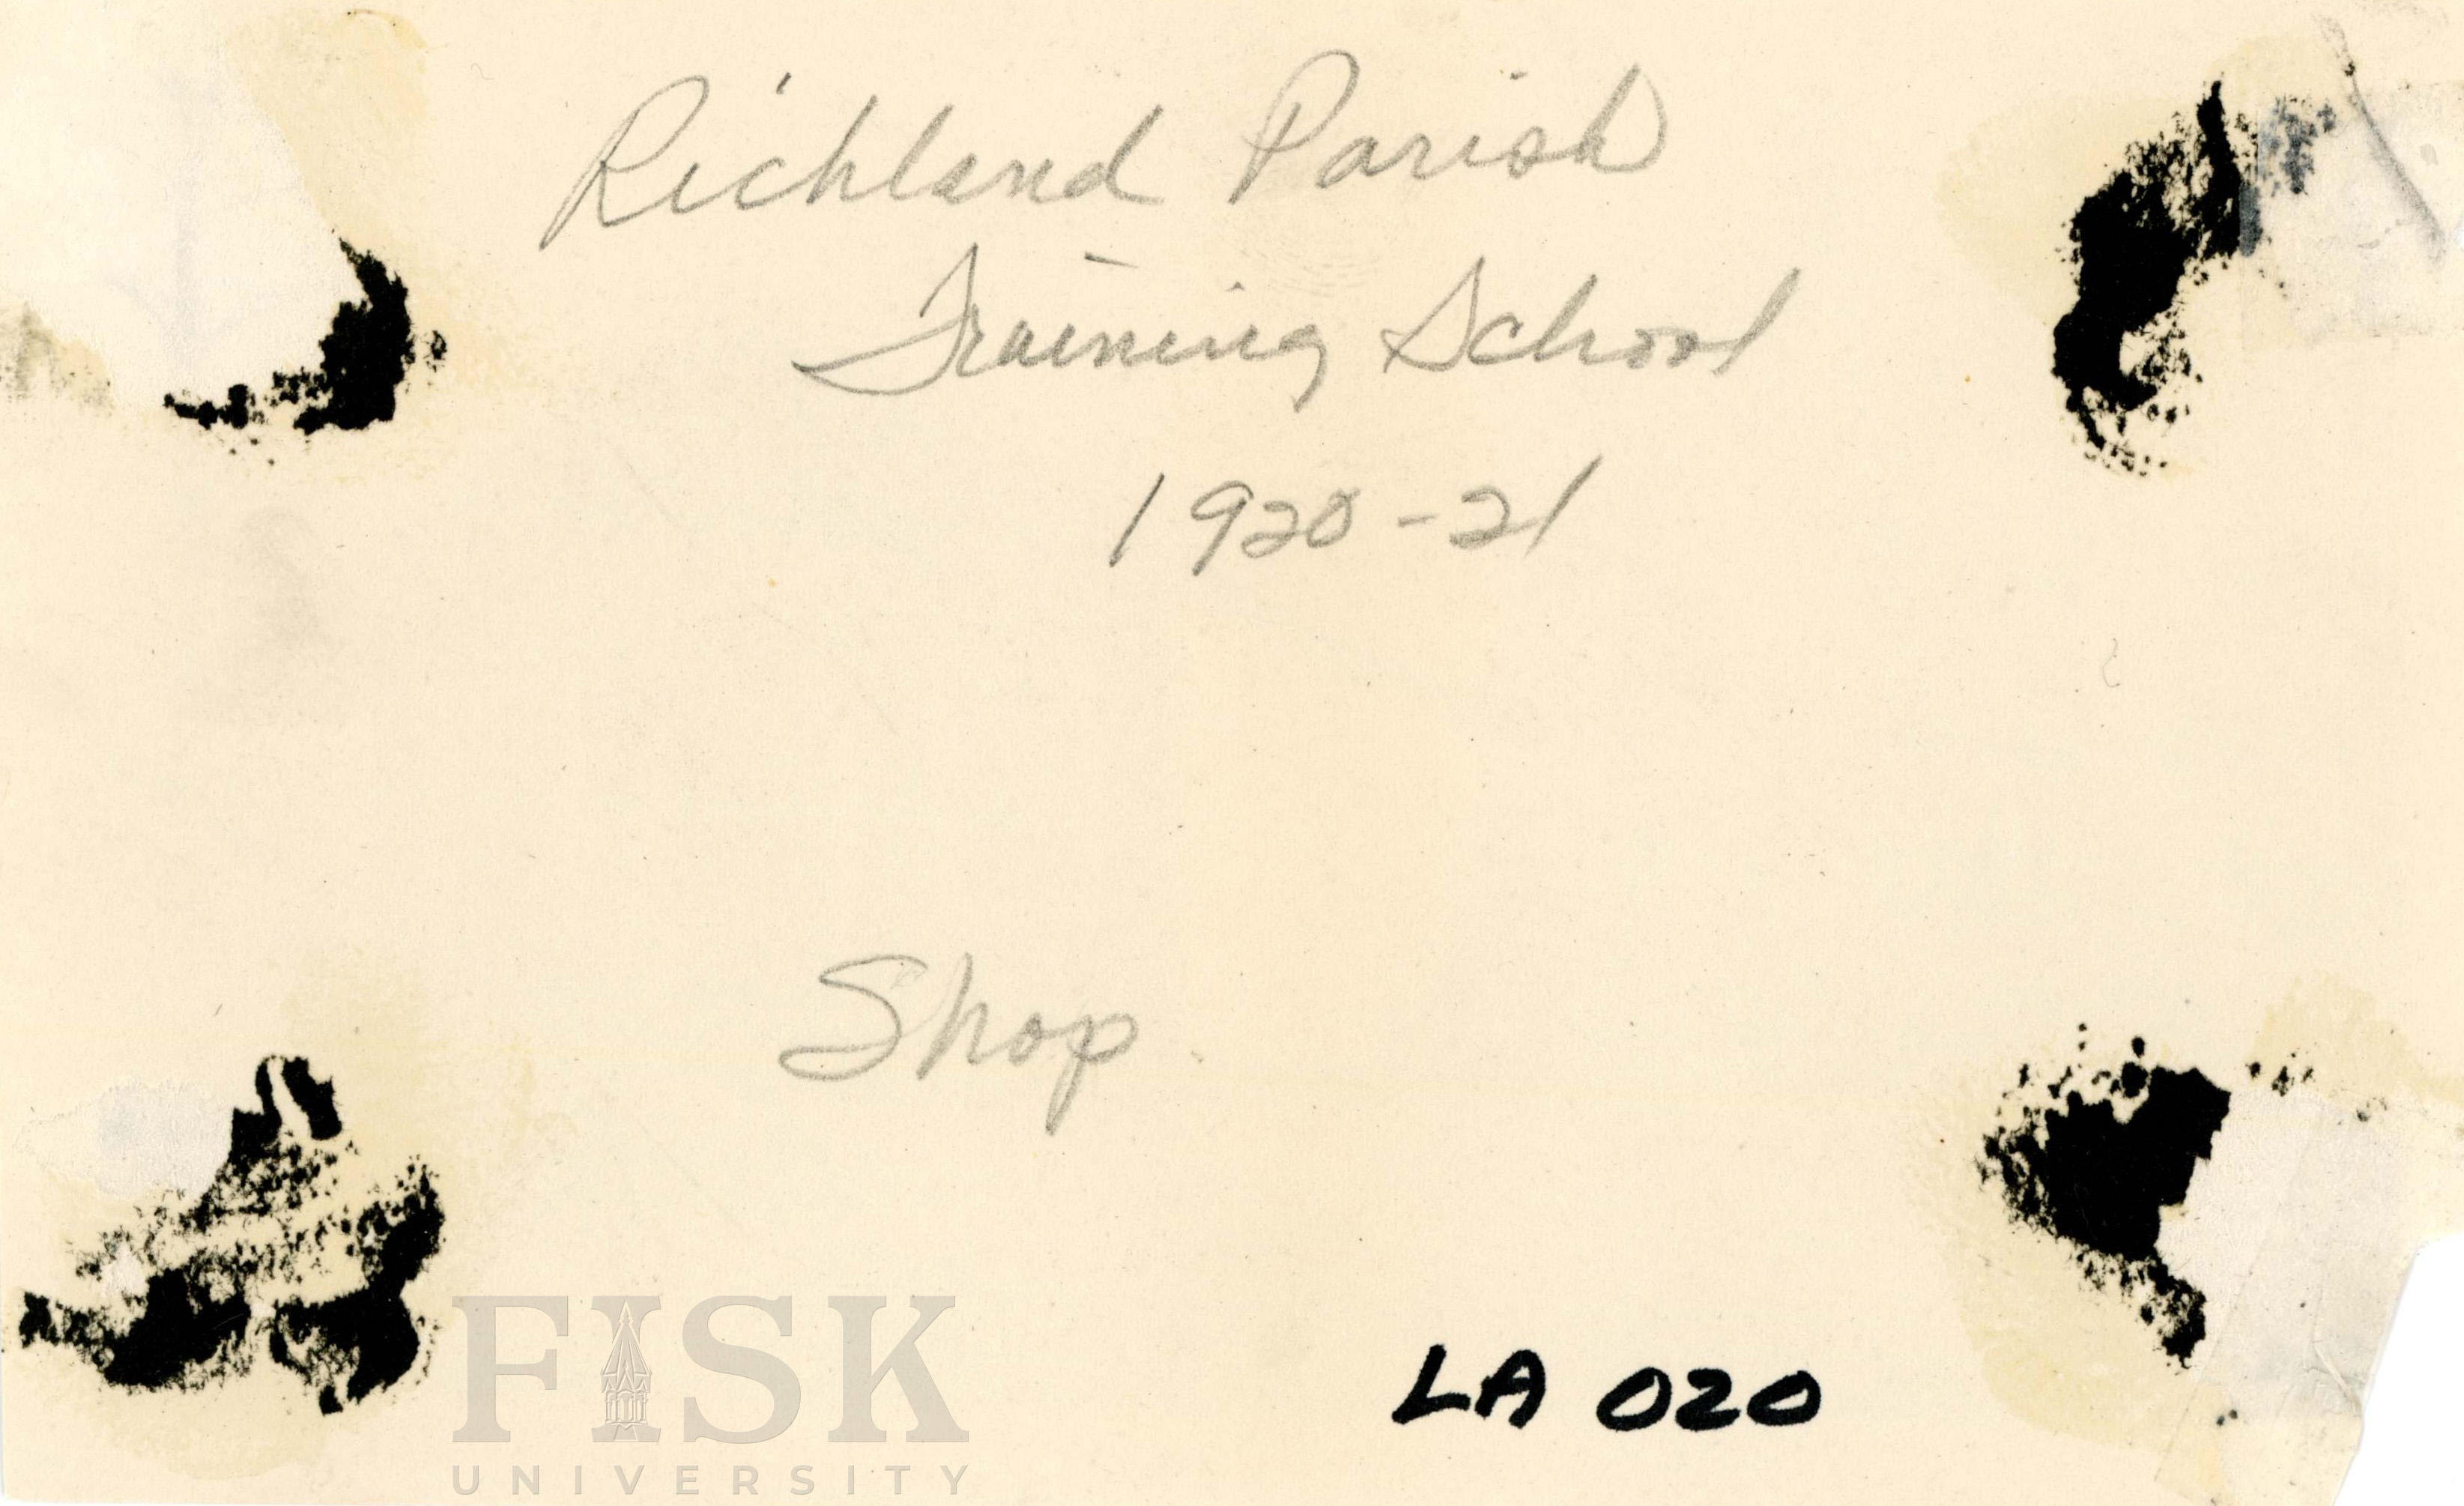 Richland Parish
Training School
1920-21
Shop
LA 020
FISK
UNIVERSITY